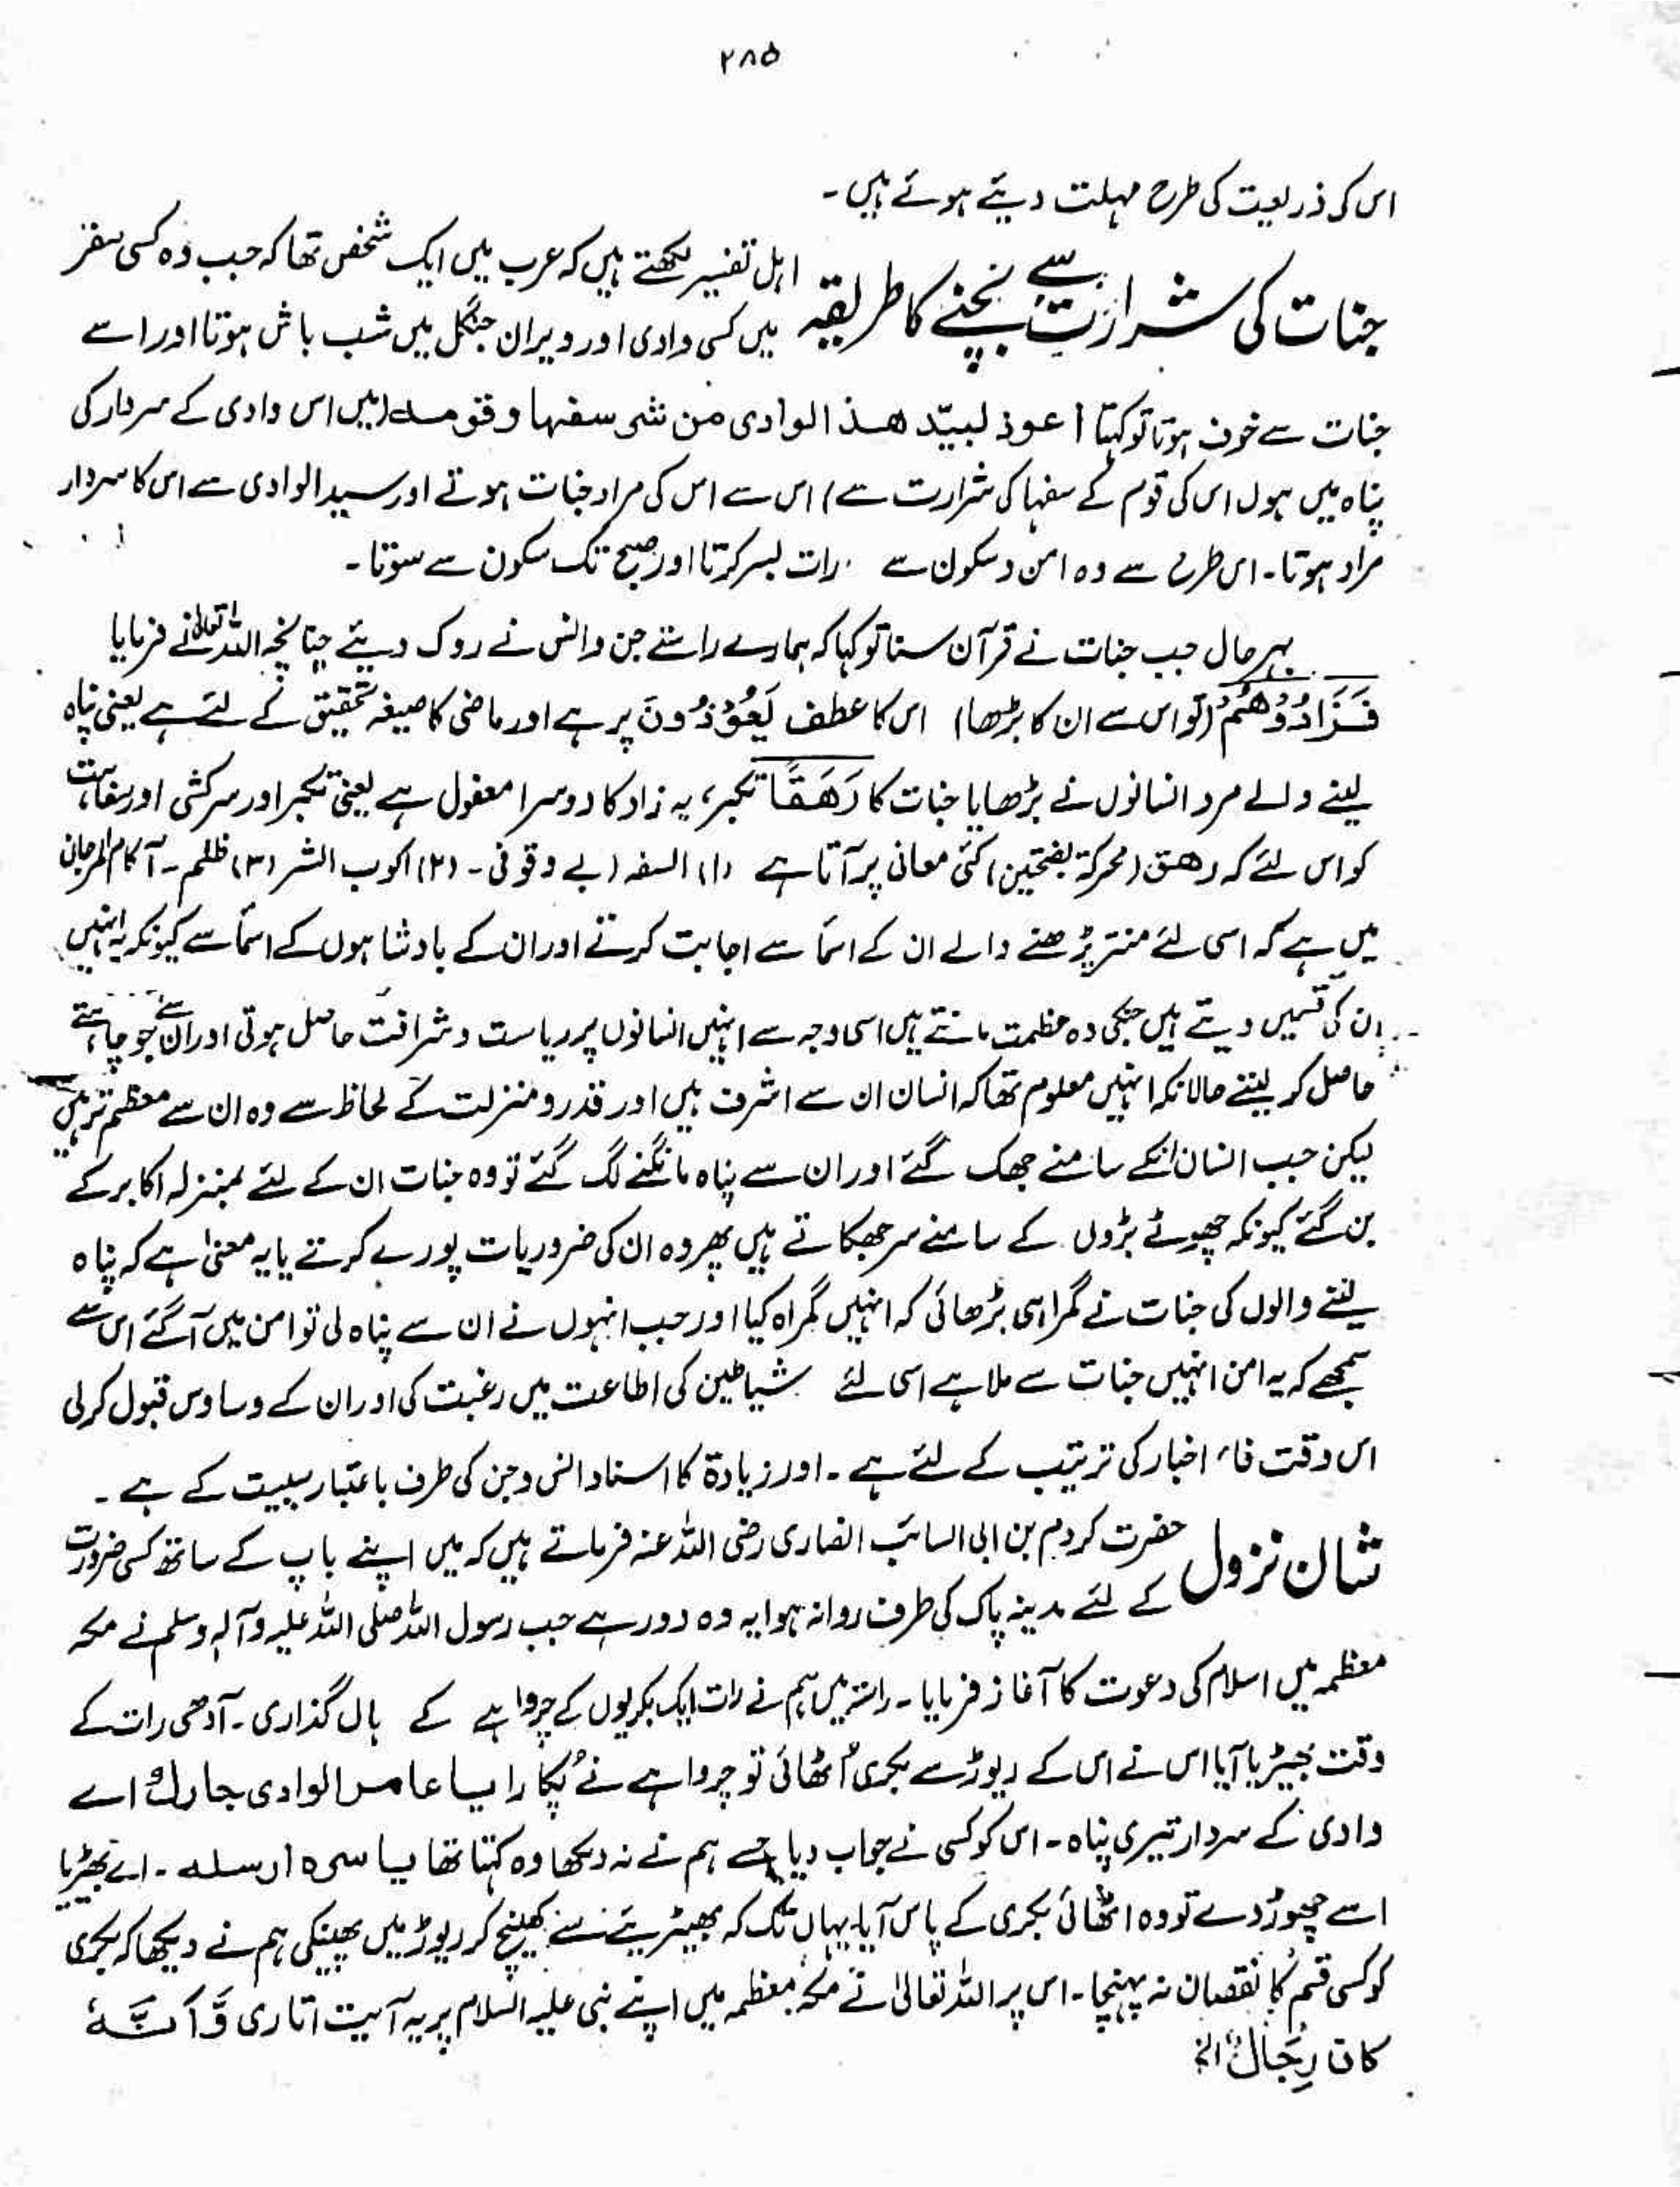 ۲۸۵
اس کی ذریعت کی طرح مہلت دیئے ہوئے ہیں۔
جنات کی شرارت سے بچنے کا طریقہ
اہل تفسیر لکھتے ہیں کہ عرب میں ایک شخص تھا کہ جب وہ کسی سفر
میں کسی وادی اور ویران جنگل میں شب باش ہوتا اور اسے
جنات سے خوف ہوتا تو کہتا أعوذ لبیّد هذا الوادی من شر سفہا وقومه (میں اس وادی کے سردار کی
پناہ میں ہوں اس کی قوم کے سفہا کی شرارت سے) اس سے اس کی مراد جنات ہوتے اور سید الوادی سے اس کا سردار
مراد ہوتا۔ اس طرح سے وہ امن و سکون سے رات بسر کرتا اور صبح تک سکون سے سوتا۔
بہرحال جب جنات نے قرآن سنا تو کہا کہ ہمارے راستے جن و انس نے روک دیئے چنانچہ اللہ تعالیٰ نے فرمایا
فَزَادُوْهُمْ (تو اس سے ان کا بڑھا) اس کا عطف یَعُوْذُوْنَ پر ہے اور ماضی کا صیغہ تحقیق کے لئے ہے یعنی پناہ
لینے والے مرد انسانوں نے بڑھایا جنات کا رَهَقًا تکبر، یہ زاد کا دوسرا مفعول ہے یعنی تکبر اور سرکشی اور سفاہت
کو اس لئے کہ رهق (محرکۃ بفتحین) کئی معانی پر آتا ہے (۱) السفہ (بے وقوفی۔ (۲) اکوب الشر (۳) ظلم۔ آکام المرجان
میں ہے کہ اسی لئے منتر پڑھنے والے ان کے اسمأ سے اجابت کرتے اور ان کے بادشاہوں کے اسمأ سے کیونکہ یہ انہیں
ان کی قسمیں دیتے ہیں جنکی وہ عظمت مانتے ہیں اسی وجہ سے انہیں انسانوں پر ریاست و شرافت حاصل ہوتی اور ان سے جو چاہتے
حاصل کر لیتے حالانکہ انہیں معلوم تھا کہ انسان ان سے اشرف ہیں اور قدر و منزلت کے لحاظ سے وہ ان سے معظم تر ہیں
لیکن جب انسان انکے سامنے جھک گئے اور ان سے پناہ مانگنے لگ گئے تو وہ جنات ان کے لئے بمنزلہ اکابر کے
بن گئے کیونکہ چھوٹے بڑوں کے سامنے سر جھکاتے ہیں پھر وہ ان کی ضروریات پورے کرتے یا یہ معنیٰ ہے کہ پناہ
لینے والوں کی جنات نے گمراہی بڑھائی کہ انہیں گمراہ کیا اور جب انہوں نے ان سے پناہ لی تو امن میں آگئے اس سے
سمجھے کہ یہ امن انہیں جنات سے ملا ہے اسی لئے شیاطین کی اطاعت میں رغبت کی اور ان کے وساوس قبول کر لی
اس وقت فاء اخبار کی ترتیب کے لئے ہے۔ اور زیادۃ کا اسناد انس و جن کی طرف باعتبار سببیت کے ہے۔
شان نزول
حضرت کردم بن ابی السائب انصاری رضی اللہ عنہ فرماتے ہیں کہ میں اپنے باپ کے ساتھ کسی ضرورت
کے لئے مدینہ پاک کی طرف روانہ ہوا یہ وہ دور ہے جب رسول اللہ صلی اللہ علیہ وآلہ وسلم نے مکہ
معظمہ میں اسلام کی دعوت کا آغاز فرمایا۔ راستہ میں ہم نے رات ایک بکریوں کے چرواہے کے ہاں گذاری۔ آدھی رات کے
وقت بھیڑیا آیا اس نے اس کے ریوڑ سے بکری اُٹھائی تو چرواہے نے پُکارا یا عامر الوادی جارك اے
وادی کے سردار تیری پناہ۔ اس کو کسی نے جواب دیا جسے ہم نے نہ دیکھا وہ کہتا تھا یا سرہ ارسله۔ اے بھیڑیا
اسے چھوڑ دے تو وہ اٹھائی بکری کے پاس آیا یہاں تک کہ بھیڑیئے سے کھینچ کر ریوڑ میں پھینکی ہم نے دیکھا کہ بکری
کو کسی قسم کا نقصان نہ پہنچا۔ اس پر اللہ تعالیٰ نے مکہ معظمہ میں اپنے نبی علیہ السلام پر یہ آیت اتاری وَّاَنَّهٗ
کان رِجَالٌ الخ